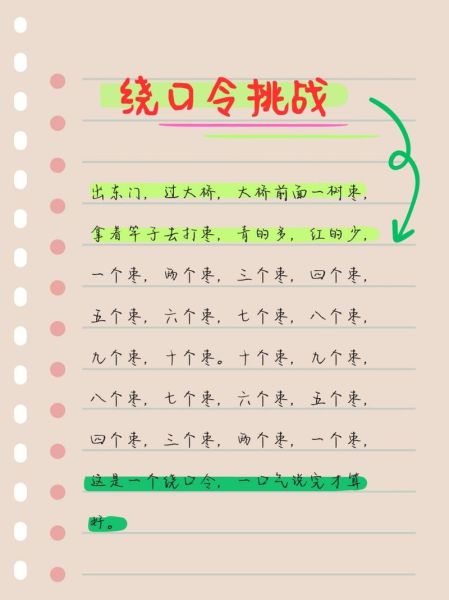 绕口令挑战
出东门，过大桥，大桥前面一树枣，
拿着竿子去打枣，青的多，红的少，
一个枣，两个枣，三个枣，四个枣，
五个枣，六个枣，七个枣，八个枣，
九个枣，十个枣。十个枣，九个枣，
八个枣，七个枣，六个枣，五个枣，
四个枣，三个枣，两个枣，一个枣，
这是一个绕口令，一口气说完才算
好。